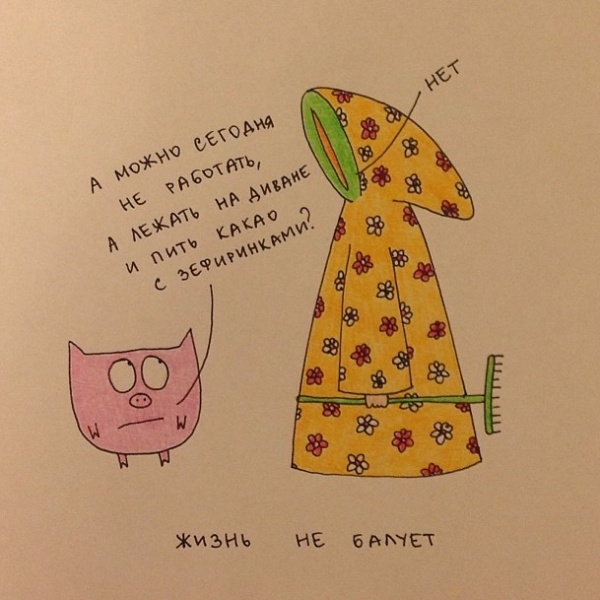 А МОЖНО СЕГОДНЯ
НЕ РАБОТАТЬ,
А ЛЕЖАТЬ НА ДИВАНЕ
И ПИТЬ КАКАО
С ЗЕФИРИНКАМИ?
НЕТ
ЖИЗНЬ НЕ БАЛУЕТ